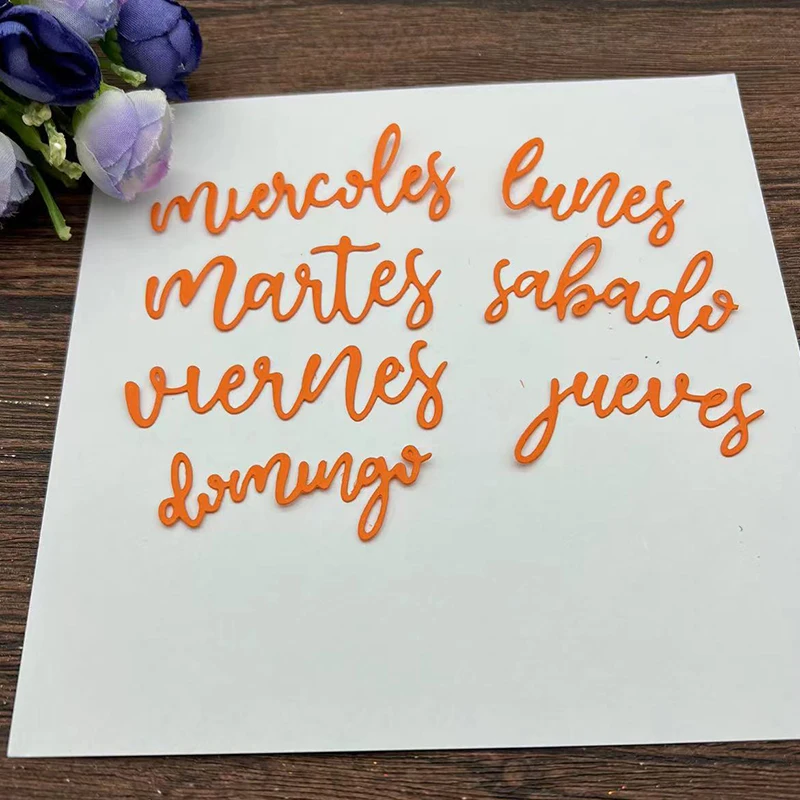 miercoles lunes
martes sabado
viernes jueves
domingo